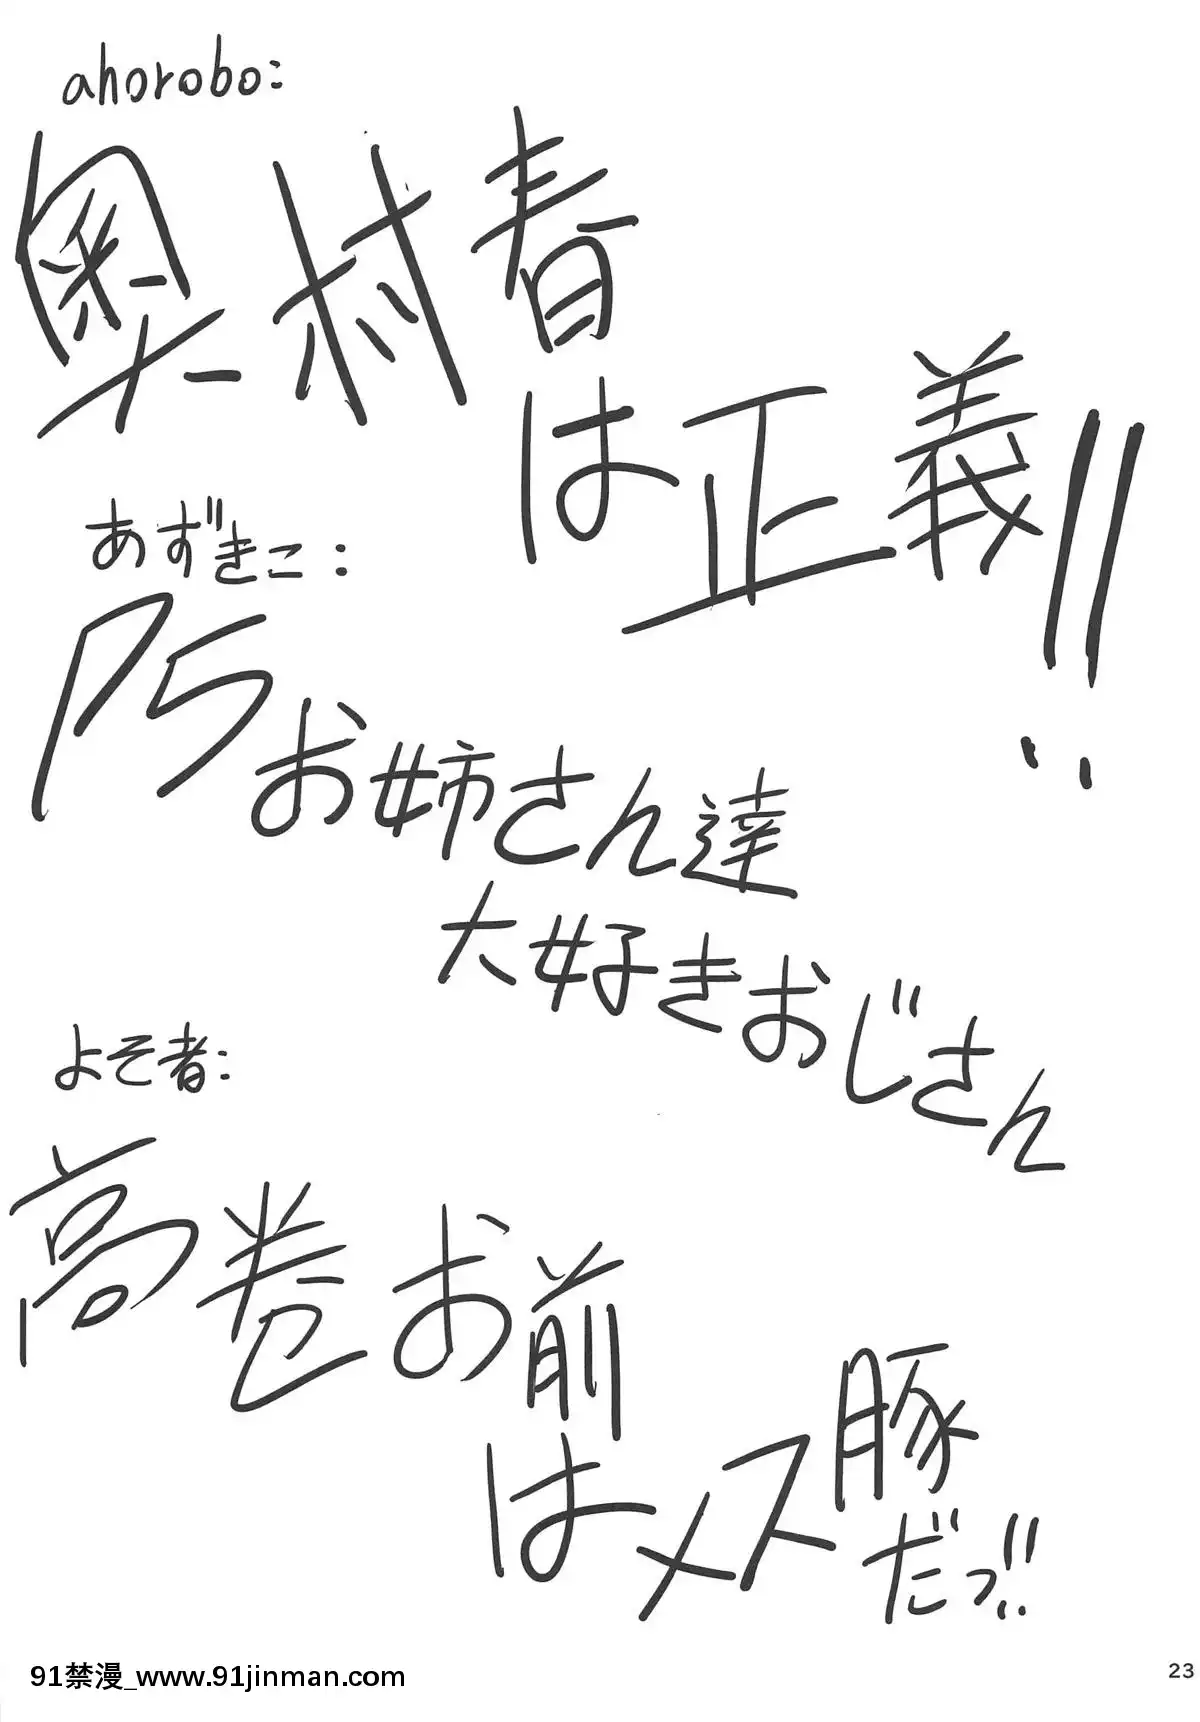 ahorobo:
奥村春
は正義!!
あずきこ:
P5
お姉さん達
大好きおじさん
よそ者:
高巻お前
はメス豚
だッ!!
91禁漫_www.91jinman.com
23